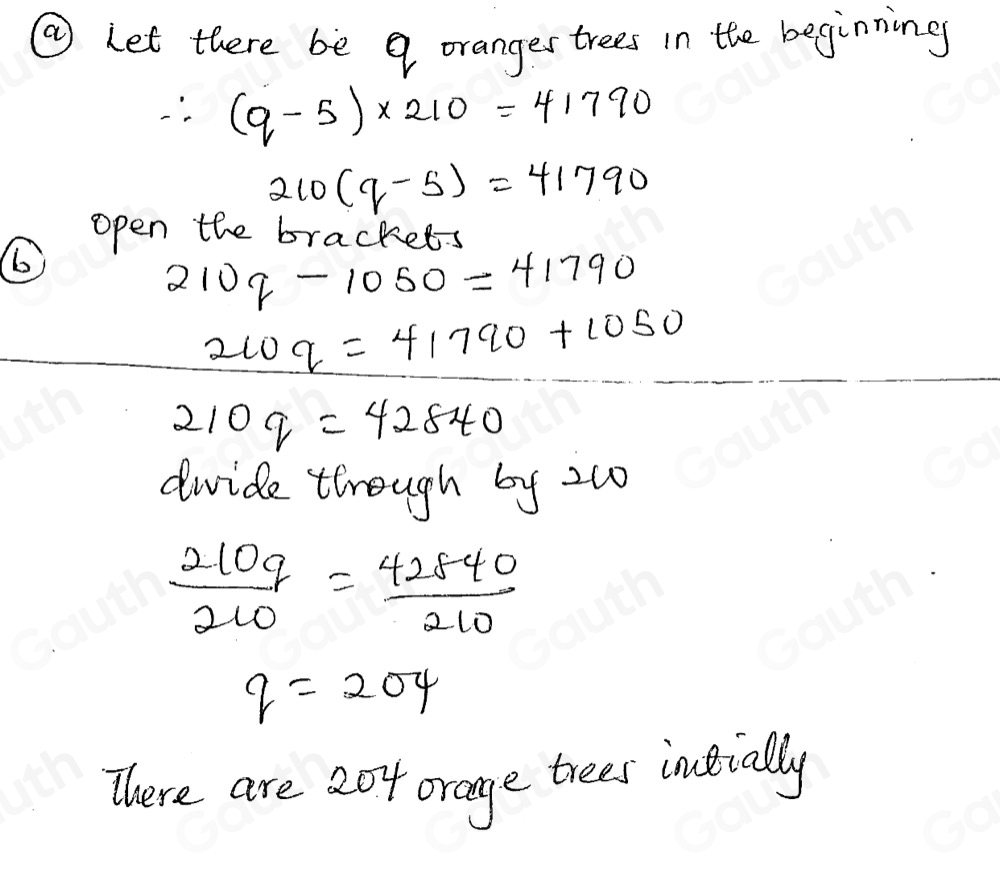 (a) Let there be q oranges trees in the beginning
∴ (q - 5) × 210 = 41790
210(q - 5) = 41790
open the brackets
(b) 210q - 1050 = 41790
210q = 41790 + 1050
210q = 42840
divide through by 210
210q/210 = 42840/210
q = 204
There are 204 orage trees initially
Gauth